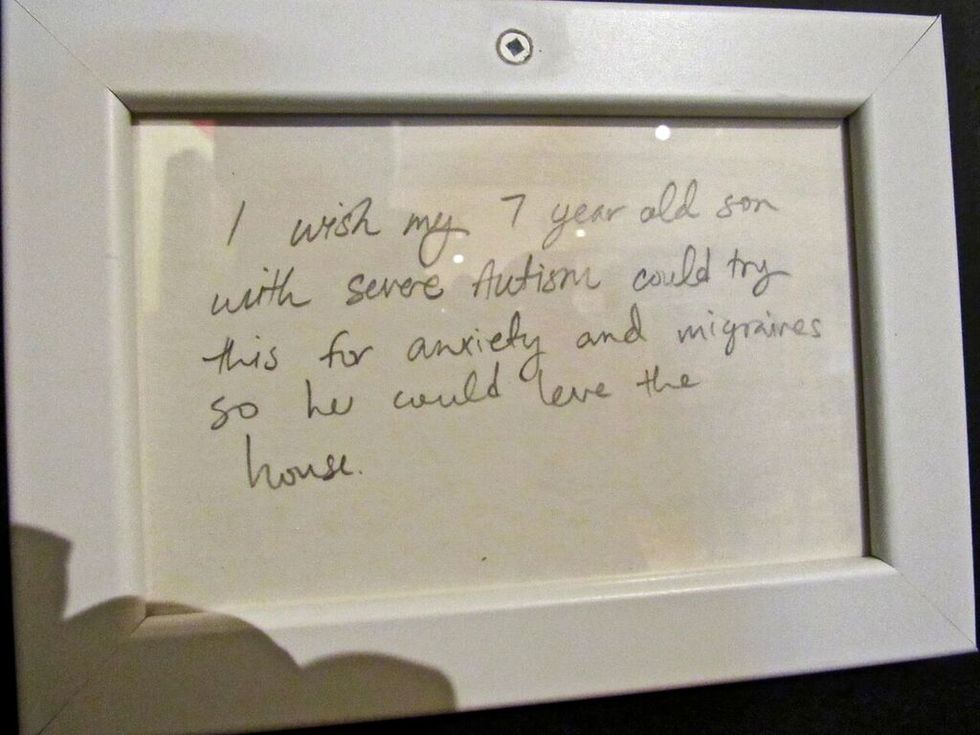 I wish my 7 year old son
with severe Autism could try
this for anxiety and migraines
so he could leve the
house.